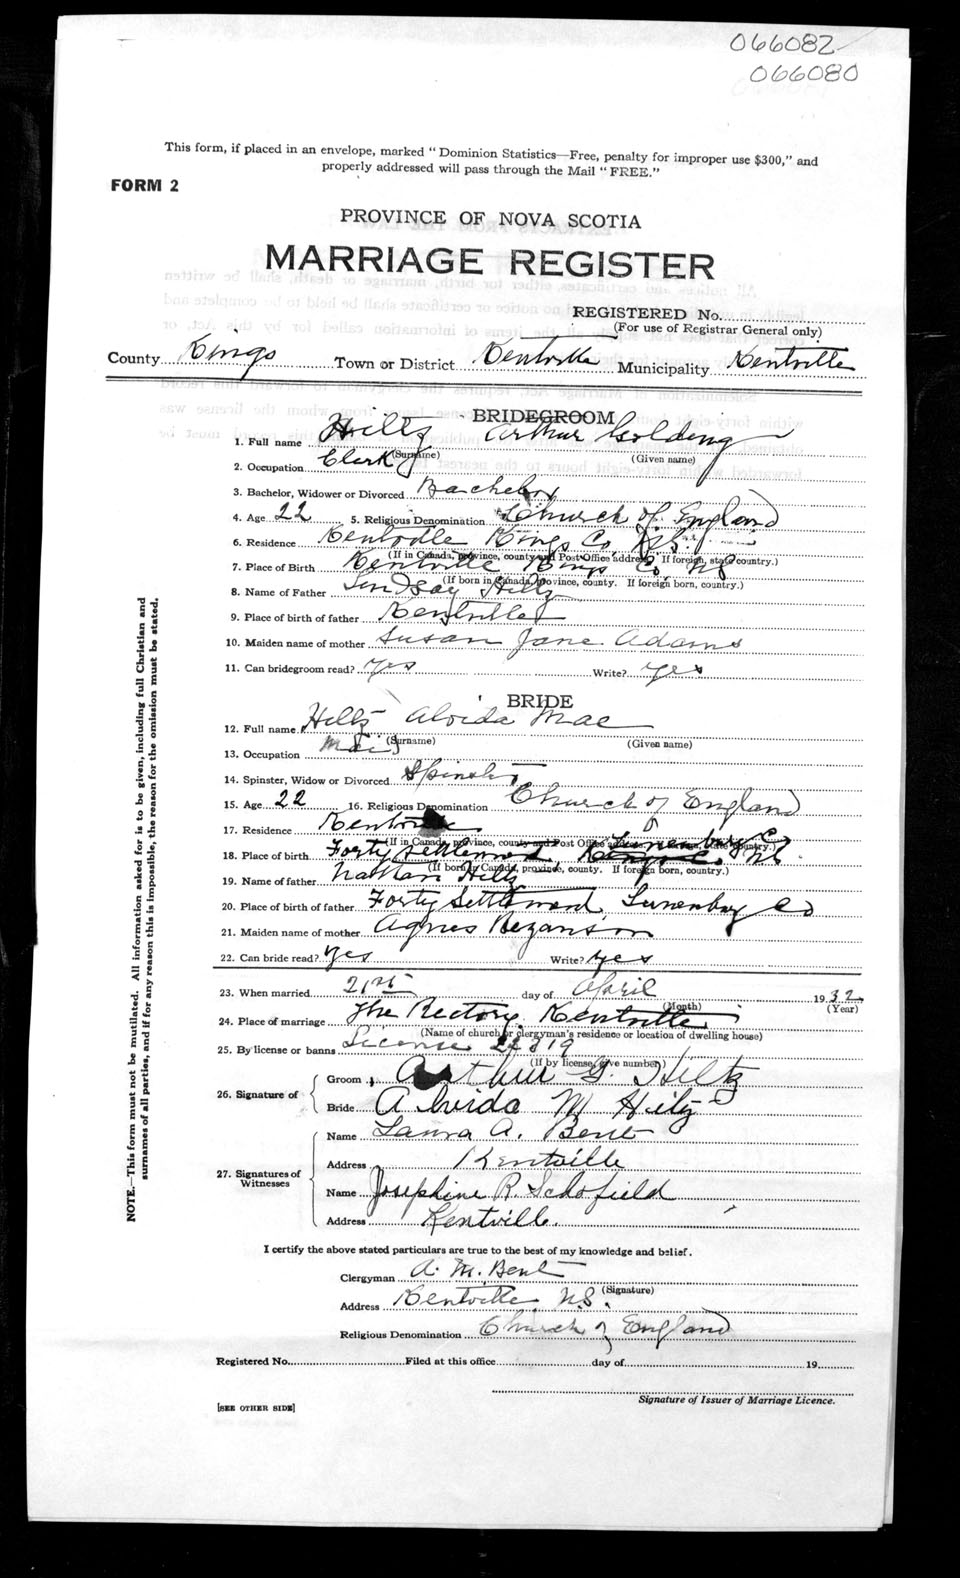 066082
066080
This form, if placed in an envelope, marked "Dominion Statistics—Free, penalty for improper use $300," and
properly addressed will pass through the Mail "FREE."
FORM 2
PROVINCE OF NOVA SCOTIA
MARRIAGE REGISTER
REGISTERED No.
(For use of Registrar General only)
County Kings Town or District Kentville Municipality Kentville
BRIDEGROOM
1. Full name Hiltz Arthur Golding
(Surname) (Given name)
2. Occupation Clerk
3. Bachelor, Widower or Divorced Bachelor
4. Age 22 5. Religious Denomination Church of England
6. Residence Kentville Kings Co. N.S.
(If in Canada, province, county and Post Office address. If foreign, state country.)
7. Place of Birth Kentville Kings Co. N.S.
(If born in Canada, province, county. If foreign born, country.)
8. Name of Father Lindsay Hiltz
9. Place of birth of father Kentville
10. Maiden name of mother Susan Jane Adams
11. Can bridegroom read? Yes Write? Yes
BRIDE
12. Full name Hiltz Alvida Mae
(Surname) (Given name)
13. Occupation Maid
14. Spinster, Widow or Divorced Spinster
15. Age 22 16. Religious Denomination Church of England
17. Residence Kentville
(If in Canada, province, county and Post Office address. If foreign, state country.)
18. Place of birth Forty Settlement, Lunenburg Co. N.S.
(If born in Canada, province, county. If foreign born, country.)
19. Name of father Nathan Hiltz
20. Place of birth of father Forty Settlement, Lunenburg Co
21. Maiden name of mother Agnes Bezanson
22. Can bride read? Yes Write? Yes
23. When married 21st day of April 1932
(Month) (Year)
24. Place of marriage The Rectory Kentville
(Name of church or clergyman's residence or location of dwelling house)
25. By license or banns License
(If by license, give number)
26. Signature of
Groom Arthur G. Hiltz
Bride Alvida M Hiltz
27. Signatures of Witnesses
Name Laura A. Bent
Address Kentville
Name Josephine R. Schofield
Address Kentville.
I certify the above stated particulars are true to the best of my knowledge and belief.
Clergyman A. M. Bent
(Signature)
Address Kentville N.S.
Religious Denomination Church of England
Registered No. Filed at this office day of 19
Signature of Issuer of Marriage Licence.
[SEE OTHER SIDE]
NOTE.—This form must not be mutilated. All information asked for is to be given, including full Christian and
surnames of all parties, and if for any reason this is impossible, the reason for the omission must be stated.